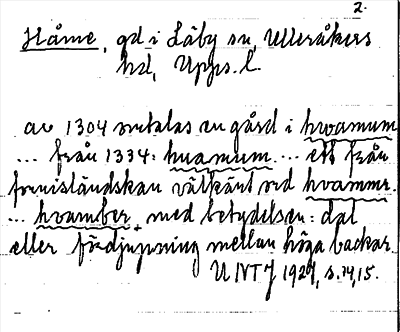 2.
Håme, gd i Läby sn, Ulleråkers
hd, Upps. l.
av 1304 omtalas en gård i hwamum
... från 1334: huamum ... ett från
fornisländskan välkänt ord hvammr.
... hvamber, med betydelsen: dal
eller fördjupning mellan höga backar.
UNT 7 1929, s. 14, 15.